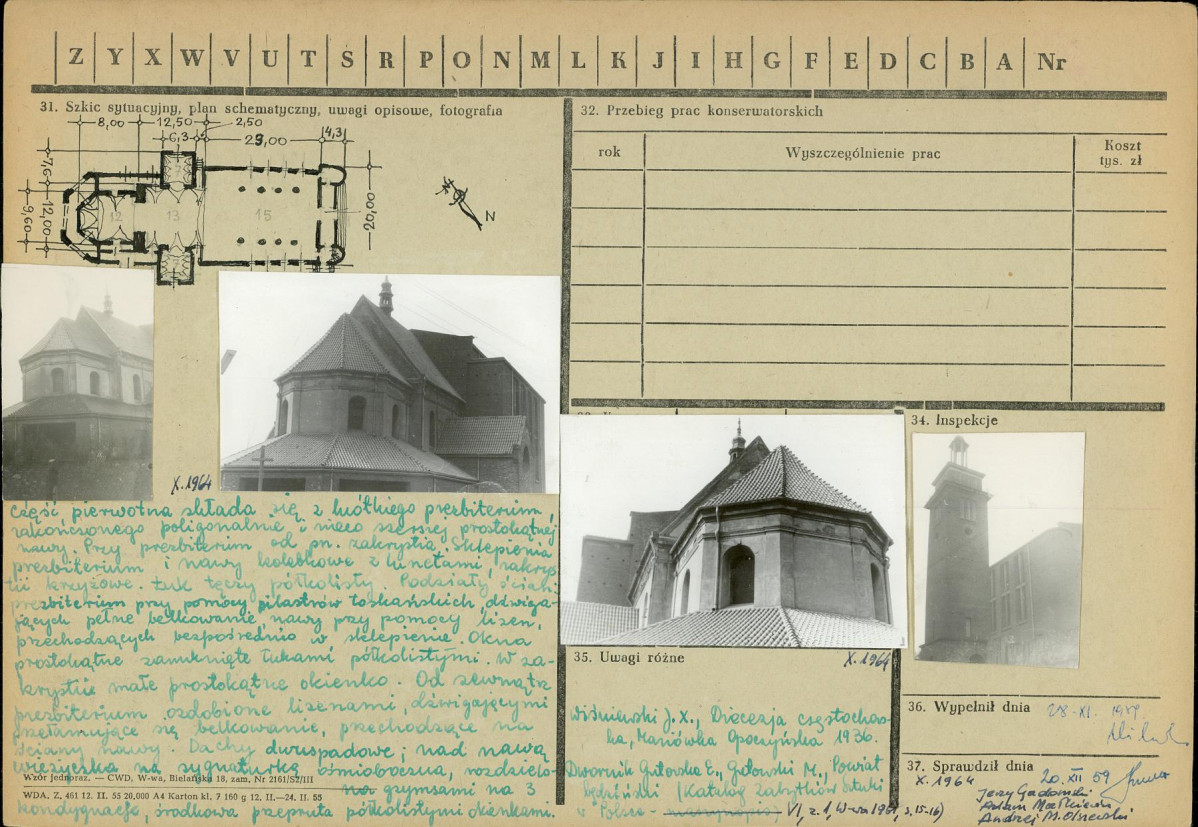 Z Y X W V U T S R P O N M L K J I H G F E D C B A Nr
31. Szkic sytuacyjny, plan schematyczny, uwagi opisowe, fotografia
8,00 12,50 2,50
6,3 29,00 4,3
7,6
12,00
9,60
20,00
12 13 15
N
X. 1964
część pierwotna składa się z krótkiego prezbiterium,
zakończonego poligonalnie i nieco szerszej prostokątnej
nawy. Przy prezbiterium od pn. zakrystia. Sklepienia
prezbiterium i nawy kolebkowe z lunetami, zakrys-
tii krzyżowe. Łuk tęczy półkolisty. Podziały ścian:
prezbiterium przy pomocy pilastrów toskańskich, dźwiga-
jących pełne belkowanie, nawy przy pomocy lizen,
przechodzących bezpośrednio w sklepienie. Okna
prostokątne zamknięte łukami półkolistymi. W za-
krystii małe prostokątne okienko. Od zewnątrz
prezbiterium ozdobione lizenami, dźwigającymi
przełamujące się belkowanie, przechodzące na
ściany nawy. Dachy dwuspadowe; nad nawą
wieżyczka na sygnaturkę ośmioboczna, rozdzielo-
na gzymsami na 3
kondygnacje, środkowa przepruta półkolistymi okienkami.
Wzór jednoraz. — CWD, W-wa, Bielańska 18, zam. Nr 2161/S2/III
WDA. Z. 461 12. II. 55 20,000 A4 Karton kl. 7 160 g 12. II.—24. II. 55
32. Przebieg prac konserwatorskich
rok Wyszczególnienie prac Koszt
tys. zł
34. Inspekcje
35. Uwagi różne
X. 1964
Wiśniewski J. X., Diecezja częstochows-
ka, Mariówka Opoczyńska 1936.
Dwornik Gutowska E., Gutowski M., Powiat
będziński (Katalog Zabytków Sztuki
w Polsce - VI, z. 1, W-wa 1961, s. 15-16)
36. Wypełnił dnia
28-XI. 1959
37. Sprawdził dnia
X. 1964 20. XII 59
Jerzy Gadomski
Adam Małkiewicz
Andrzej M. Olszewski